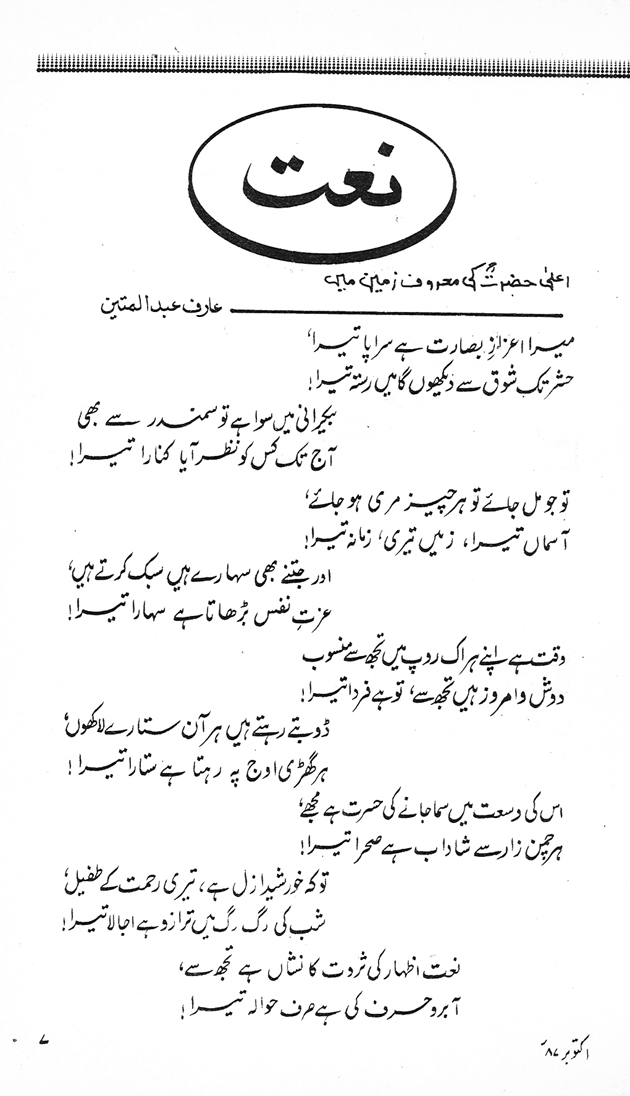 نعت
اعلیٰ حضرتؒ کی معروف زمین میں
عارف عبدالمتین
میرا اعزازِ بصارت ہے سراپا تیرا،
حشر تک شوق سے دیکھوں گا میں رستہ تیرا!
بیکرانی میں سوا ہے تو سمندر سے بھی
آج تک کس کو نظر آیا کنارا تیرا!
تو جو مل جائے تو ہر چیز مری ہو جائے،
آسماں تیرا، زمیں تیری، زمانہ تیرا!
اور جتنے بھی سہارے ہیں سبک کرتے ہیں،
عزتِ نفس بڑھاتا ہے سہارا تیرا!
وقت ہے اپنے ہر اک روپ میں تجھ سے منسوب
دوش و امروز ہیں تجھ سے، تو ہے فردا تیرا!
ڈوبتے رہتے ہیں ہر آن ستارے لاکھوں،
ہر گھڑی اوج پہ رہتا ہے ستارا تیرا!
اس کی وسعت میں سما جانے کی حسرت ہے مجھے،
ہر چمن زار سے شاداب ہے صحرا تیرا!
تو کہ خورشیدِ ازل ہے، تیری رحمت کے طفیل،
شب کی رگ رگ میں ترازو ہے اجالا تیرا!
نعت اظہار کی ثروت کا نشاں ہے تجھ سے،
آبرو حرف کی ہے صرف حوالہ تیرا!
اکتوبر ۸۷ء
۷